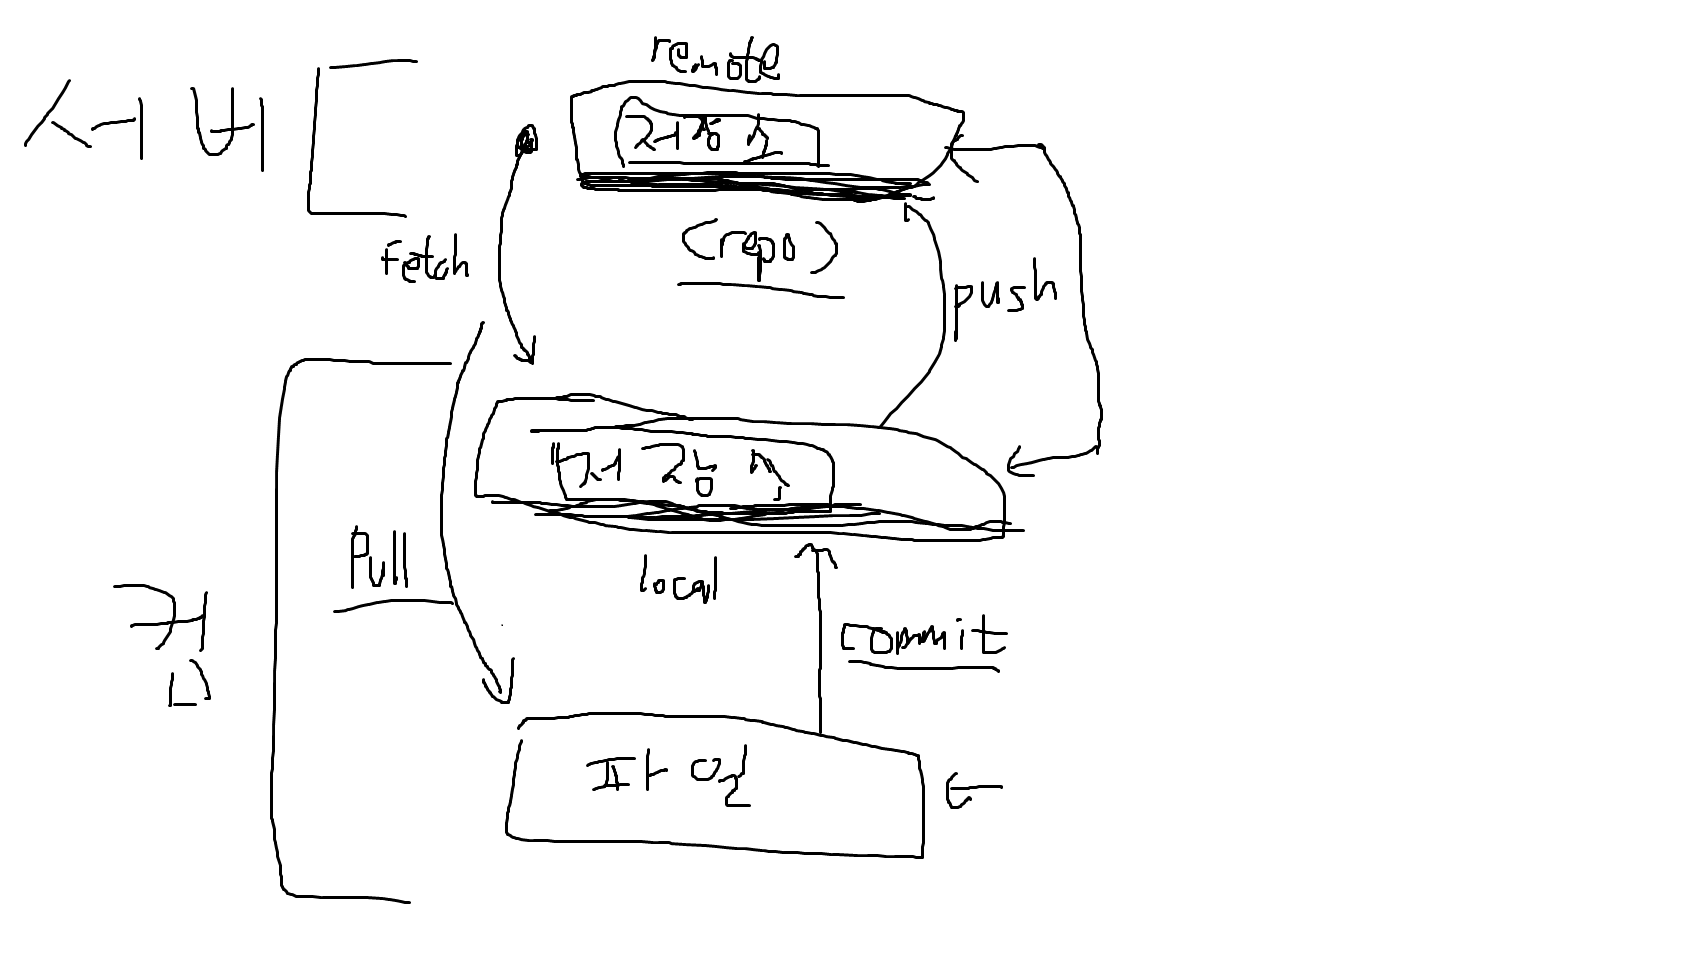 remote
서버
저장소
(repo)
Fetch
push
"저장소
Pull
local
컴
commit
파일